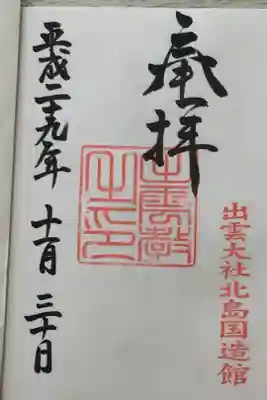 出雲大社北島国造館
奉拝
出雲教之印
平成二十九年 十一月 三十日